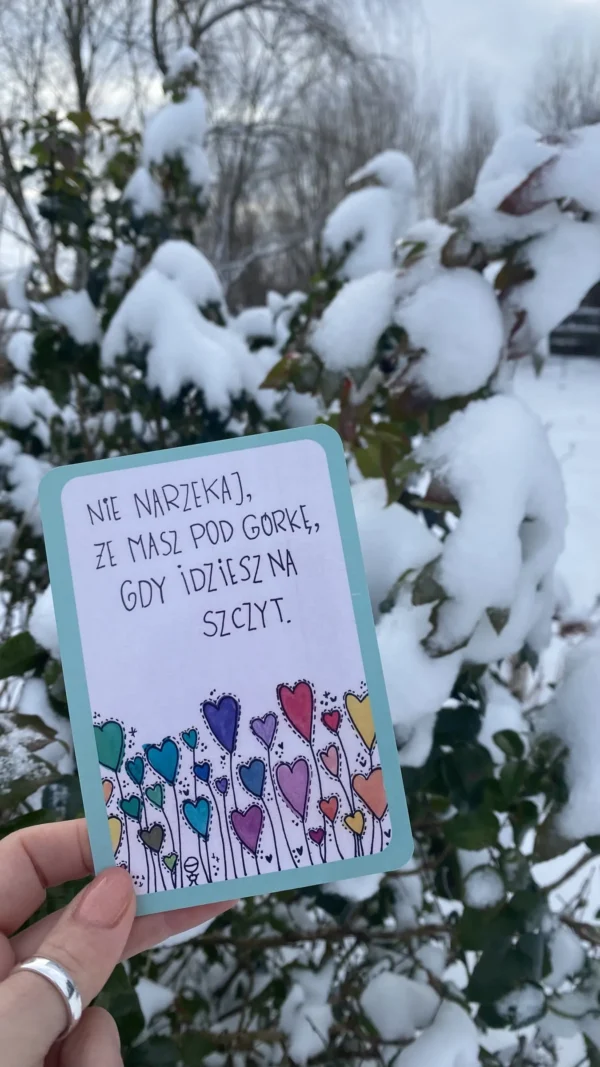 NIE NARZEKAJ,
ŻE MASZ POD GÓRKĘ,
GDY IDZIESZ NA
SZCZYT.